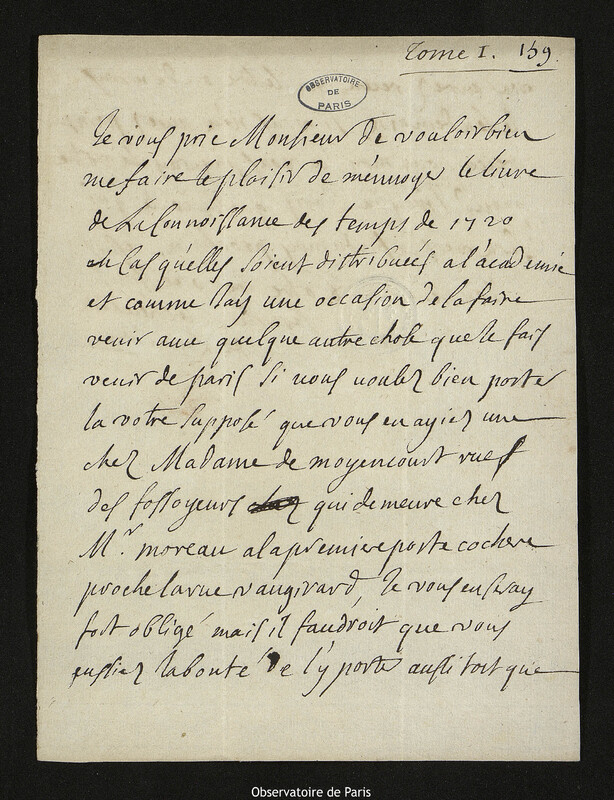 Tome I. 159.
OBSERVATOIRE
DE
PARIS
Je vous prie Monsieur de vouloir bien
me faire le plaisir de m'énvoyer le livre
de La Connoissance des temps de 1720
en cas qu'elles soient distribuées a l'académie
et comme j'ay une occasion de la faire
venir avec quelque autre chose que je fais
venir de paris si vous voulez bien porter
la votre supposé que vous en ayiez une
chez Madame de moyencourt rue
des fossoyeurs qui demeure chez
Mr. moreau a la premiere porte cochere
proche la rue vaugirard, Je vous en seray
fort obligé mais il faudroit que vous
eussiez la bonté de l'y porter aussi tost que
Observatoire de Paris